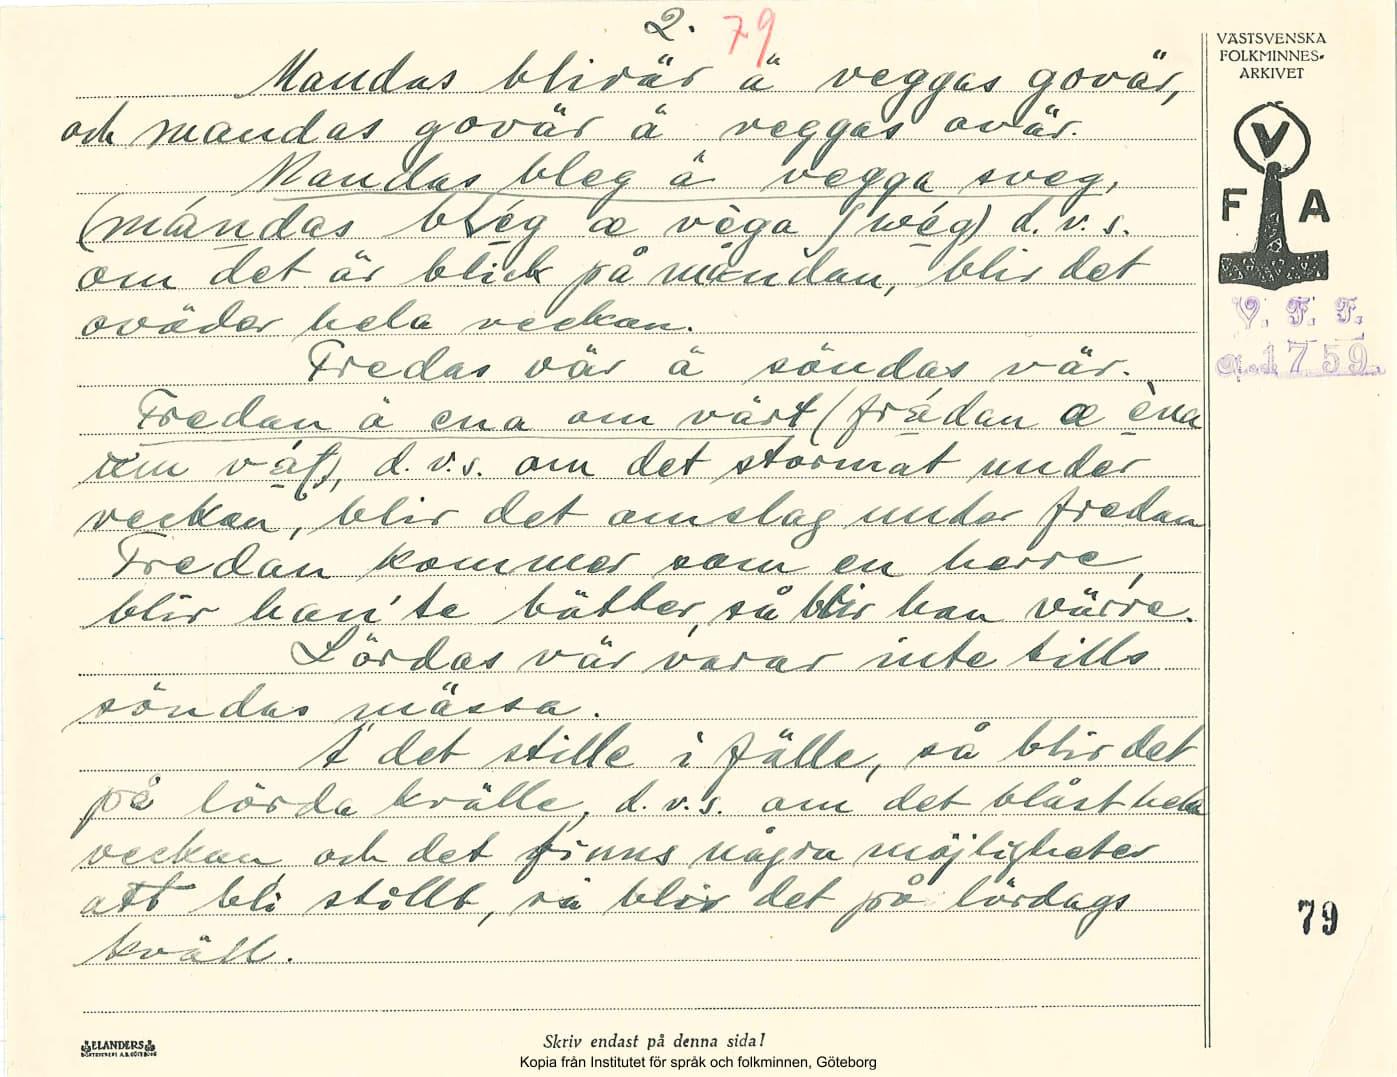 2. 79
VÄSTSVENSKA
FOLKMINNES-
ARKIVET
Mandas blirär ä veggas govär,
och mandas govär ä veggas ovär.
Mandas bleg ä vegga sveg,
(mándas blég æ vèga swég) d. v. s.
om det är blick på måndan, blir det
oväder hela veckan.
Fredas vär ä söndas vär.
Fredan ä ena om värt (frédan æ èna
um vä́ṭ), d. v. s. om det stormat under
veckan, blir det omslag under fredan
Fredan kommer som en herre,
blir han'te bätter, så blir han värre.
Lördas vär varar inte tills
söndas mässa.
Ä det stille i fjälle, så blir det
på lörda kvälle, d. v. s. om det blåst hela
veckan och det finns några möjligheter
att bli stillt, så blir det på lördags
kväll.
V
F A
V. F. F.
1759
79
ELANDERS
BOKTRYCKERI A.B. GÖTEBORG
Skriv endast på denna sida!
Kopia från Institutet för språk och folkminnen, Göteborg